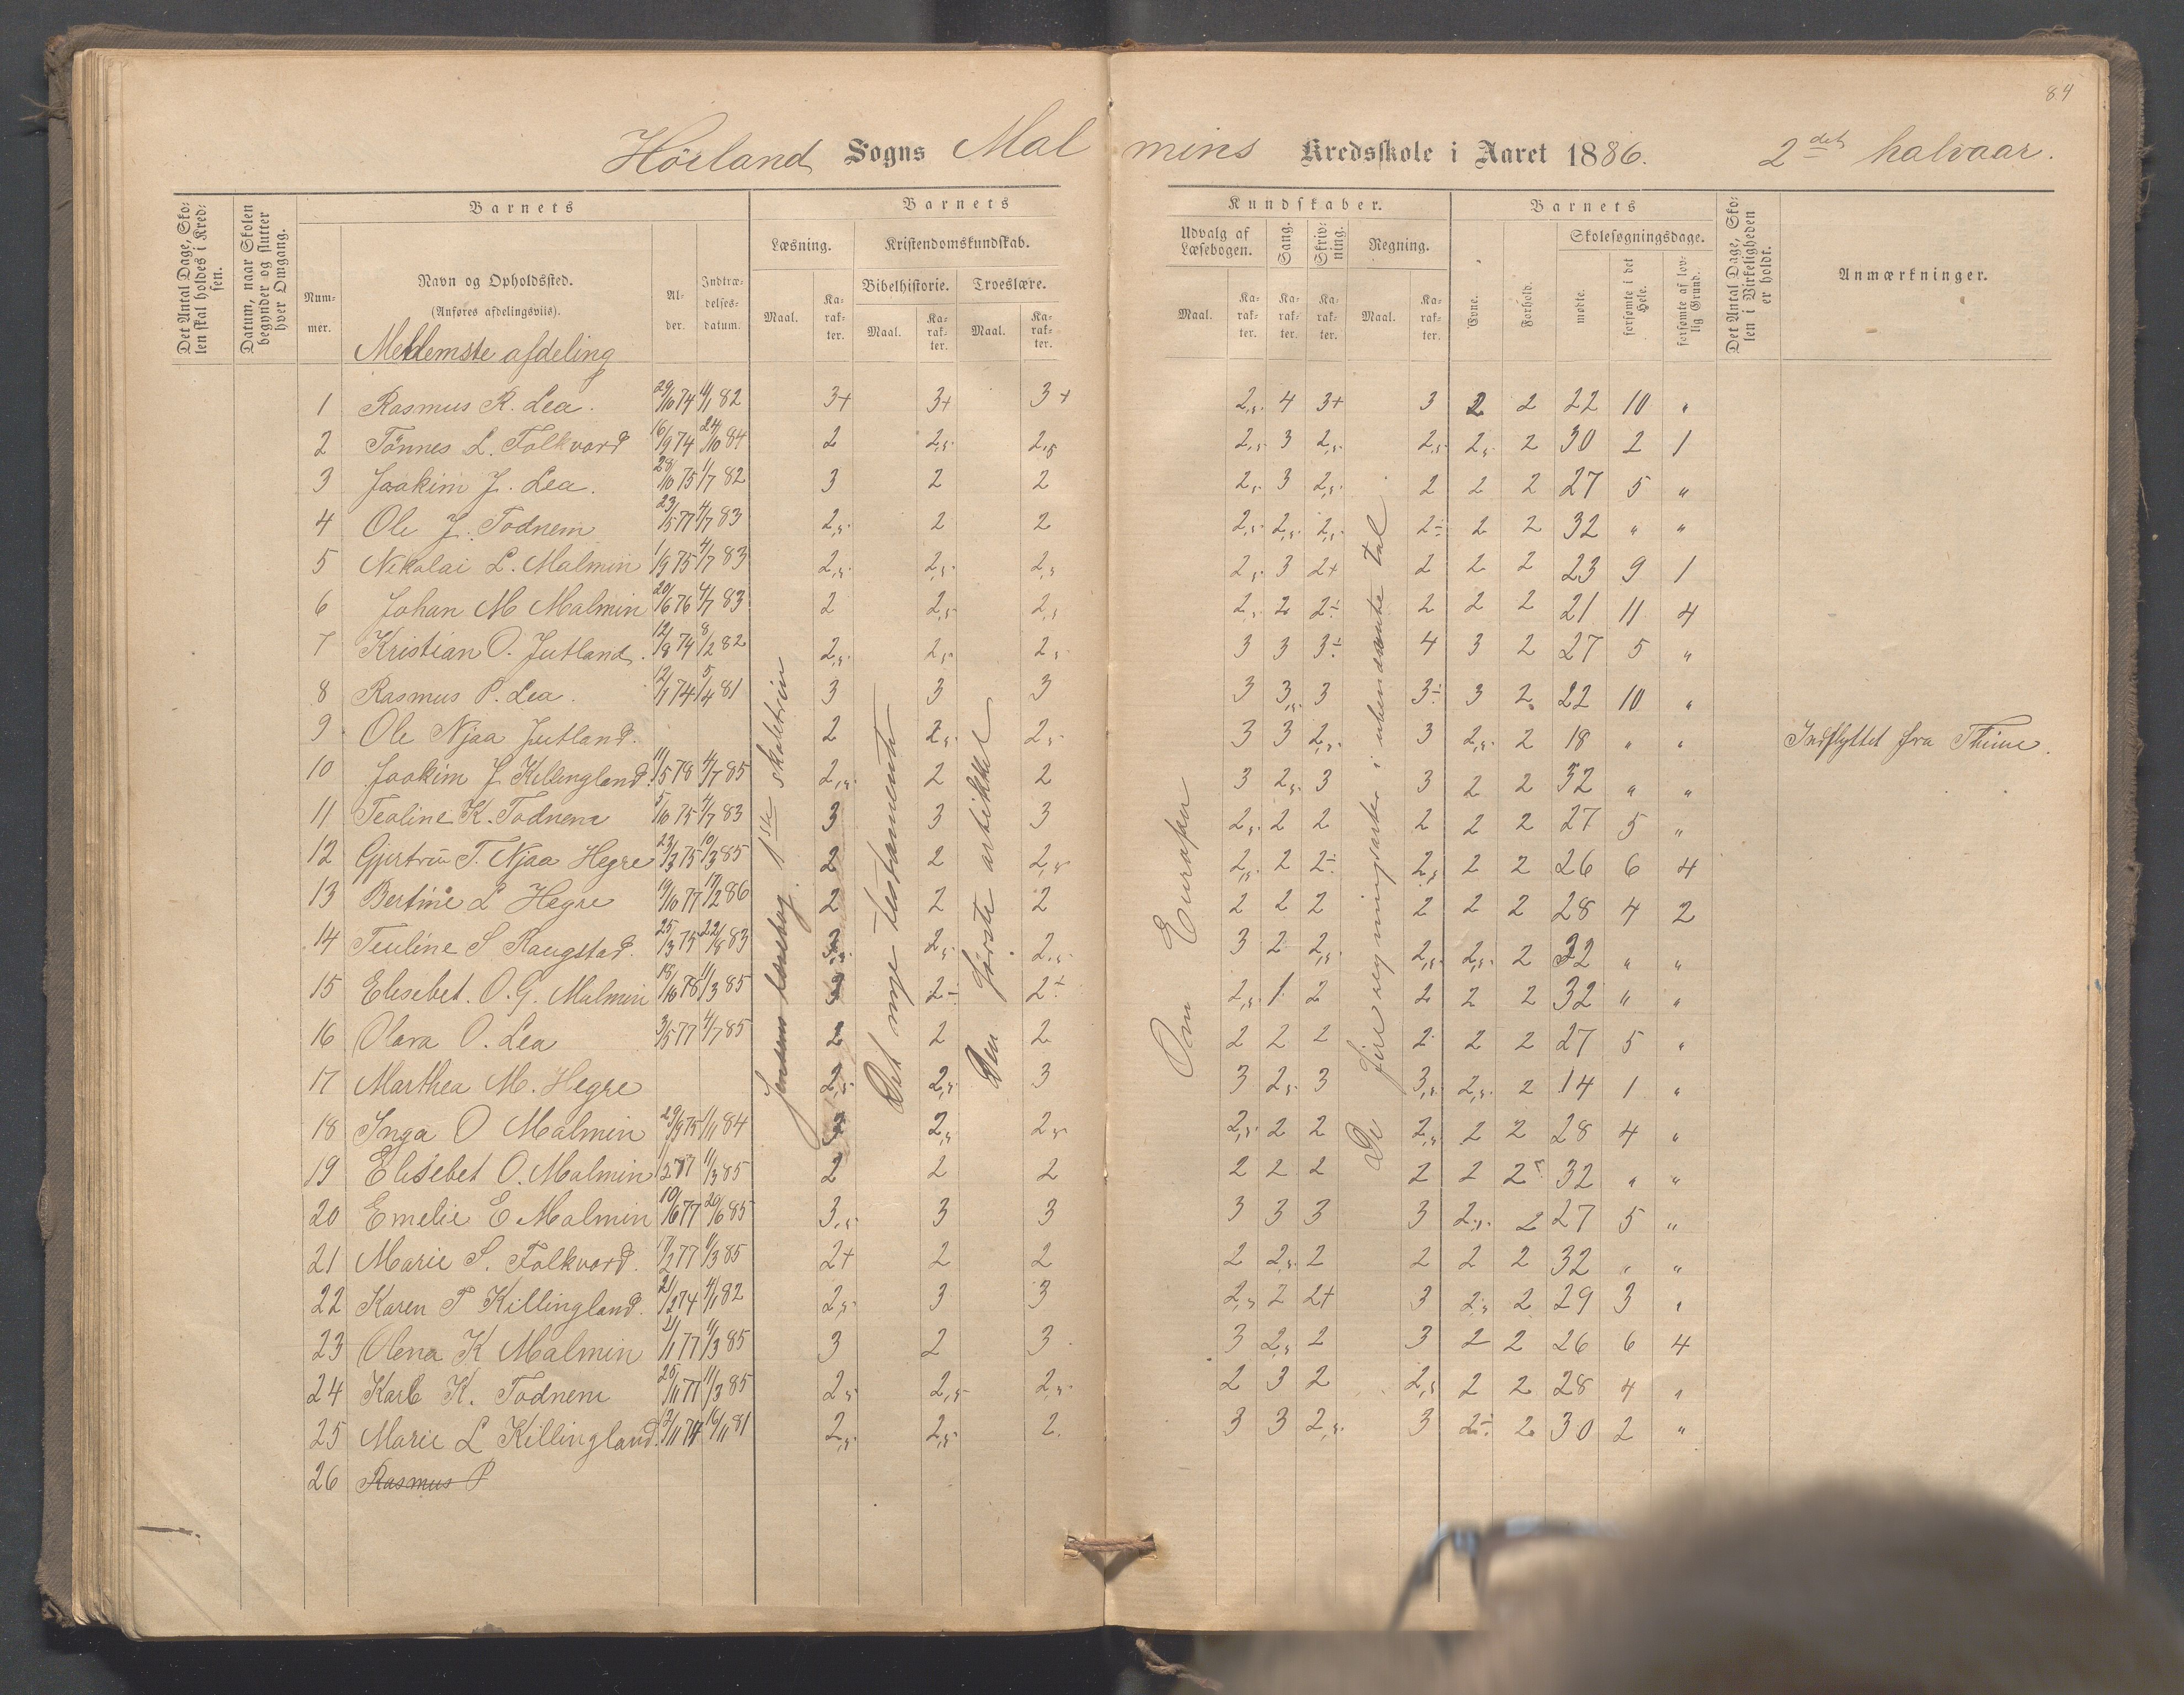 84
Höiland Sogns Malmins Kredsskole i Aaret 1886. 2det halvaar.
Det Antal Dage, Skolen skal holdes i Kredsen.
Datum, naar Skolen begynder og slutter hver Omgang.
Barnets
Barnets
Kundskaber.
Barnets
Det Antal Dage, Skolen i Virkeligheden er holdt.
Anmærkninger.
Nummer.
Navn og Opholdssted.
(Anføres afdelingsviis).
Alder.
Indtrædelsesdatum.
Læsning.
Kristendomskundskab.
Bibelhistorie.
Troeslære.
Udvalg af Læsebogen.
Sang.
Skrivning.
Regning.
Evne.
Forhold.
Skolesøgningsdage.
mødte.
forsømte i det Hele.
forsømte af lovlig Grund.
Maal.
Karakter.
Maal.
Karakter.
Maal.
Karakter.
Maal.
Karakter.
Karakter.
Karakter.
Maal.
Karakter.
Mellemste afdeling
Jensens læsebog. 1ste skoletrin
Det nye testamente
Den første artikkel
Om Europa
De fire regningsarter i ubenævnte tal
1 Rasmus R. Lea. 29/10 74 11/1 82 3+ 3+ 3+ 2,5. 4 3+ 3 2 2 22 10 "
2 Tönnes L. Folkvord 16/9 74 24/10 84 2 2,5 2,5 2,5. 3 2,5. 2,5 2,5. 2 30 2 1
3 Joakim J. Lea. 28/10 75 1/7 82 3 2 2 2,5. 3 2,5. 2 2 2 27 5 "
4 Ole J. Todnem 23/5 77 4/7 83 2,5. 2 2 2,5. 2,5. 2,5. 2÷ 2 2 32 " "
5 Nikolai L. Malmin 1/9 75 4/7 83 2,5. 2,5. 2,5 2,5. 3 2+ 2 2 2 23 9 1
6 Johan M Malmin 20/6 76 4/7 83 2 2,5 2,5 2,5. 2 2÷ 2 2 2 21 11 4
7 Kristian O. Jutland. 12/8 74 8/2 82 2,5. 2,5. 2,5 3 3 3÷ 4 3 2 27 5 "
8 Rasmus P. Lea. 12/1 74 5/4 81 3 3 3 3 3,5. 3 3÷ 3 2 22 10 "
9 Ole Njaa Jutland. 2 2,5. 2,5 3 3 2,5. 3 2,5. 2 18 " " Indflyttet fra Thime.
10 Joakim J. Killingland. 11/5 78 4/7 85 2,5. 2 2 3 2,5. 3 3 2 2 32 " "
11 Tealine K. Todnem 5/10 75 4/7 83 3 3 3 2,5. 2 2 2 2 2 27 5 "
12 Gjertrü T. Njaa Hegre 23/3 75 10/3 85 2 2 2,5 2,5. 2 2÷ 2,5 2 2 26 6 4
13 Bertine L Hegre 19/10 77 17/2 86 2 2 2 2 2 2 2 2 2 28 4 2
14 Teuline S Haugstad. 25/3 75 22/8 83 3,5. 2,5. 2,5 3 2 2,5. 2,5. 2,5. 2 32 " "
15 Elisebet. O.G. Malmin 18/10 78 11/3 85 3 2÷ 2÷ 2,5. 1 2 2 2 2 32 " "
16 Olava O. Lea 3/5 77 4/7 85 2 2 2 2 2 2 2 2 2 27 5 "
17 Marthea M. Hegre 2,5 2,5. 3 3 2,5. 3 3,5. 2,5. 2 14 1 "
18 Inga O Malmin 29/9 75 1/11 84 3 2,5 2,5 2,5. 2 2 2,5 2 2 28 4 "
19 Elisebet O. Malmin 1/5 77 11/3 85 2 2 2 2 2 2 2 2 2 32 " "
20 Emelie E Malmin 10/6 77 20/6 85 3,5. 3 3 3 3 3 3 2,5. 2 27 5 "
21 Marie S. Folkvord. 7/2 77 11/3 85 2+ 2 2 2 2,5. 2 2 2 2 32 " "
22 Karen T Killingland. 21/2 74 4/1 82 2,5. 3 3 2,5 2 2+ 3 2,5 2 29 3 "
23 Olena K Malmin 21/1 77 11/3 85 3 2 3 3 2,5 2 3 2 2 26 6 4
24 Karl K. Todnem 20/11 77 11/3 85 2,5 2,5. 2,5. 2 3 2 2,5 2 2 28 4 "
25 Marie L Killingland. 12/11 74 16/11 81 2,5. 2,5 2. 3 3 2,5. 3 2÷ 2 30 2 "
26 Rasmus P